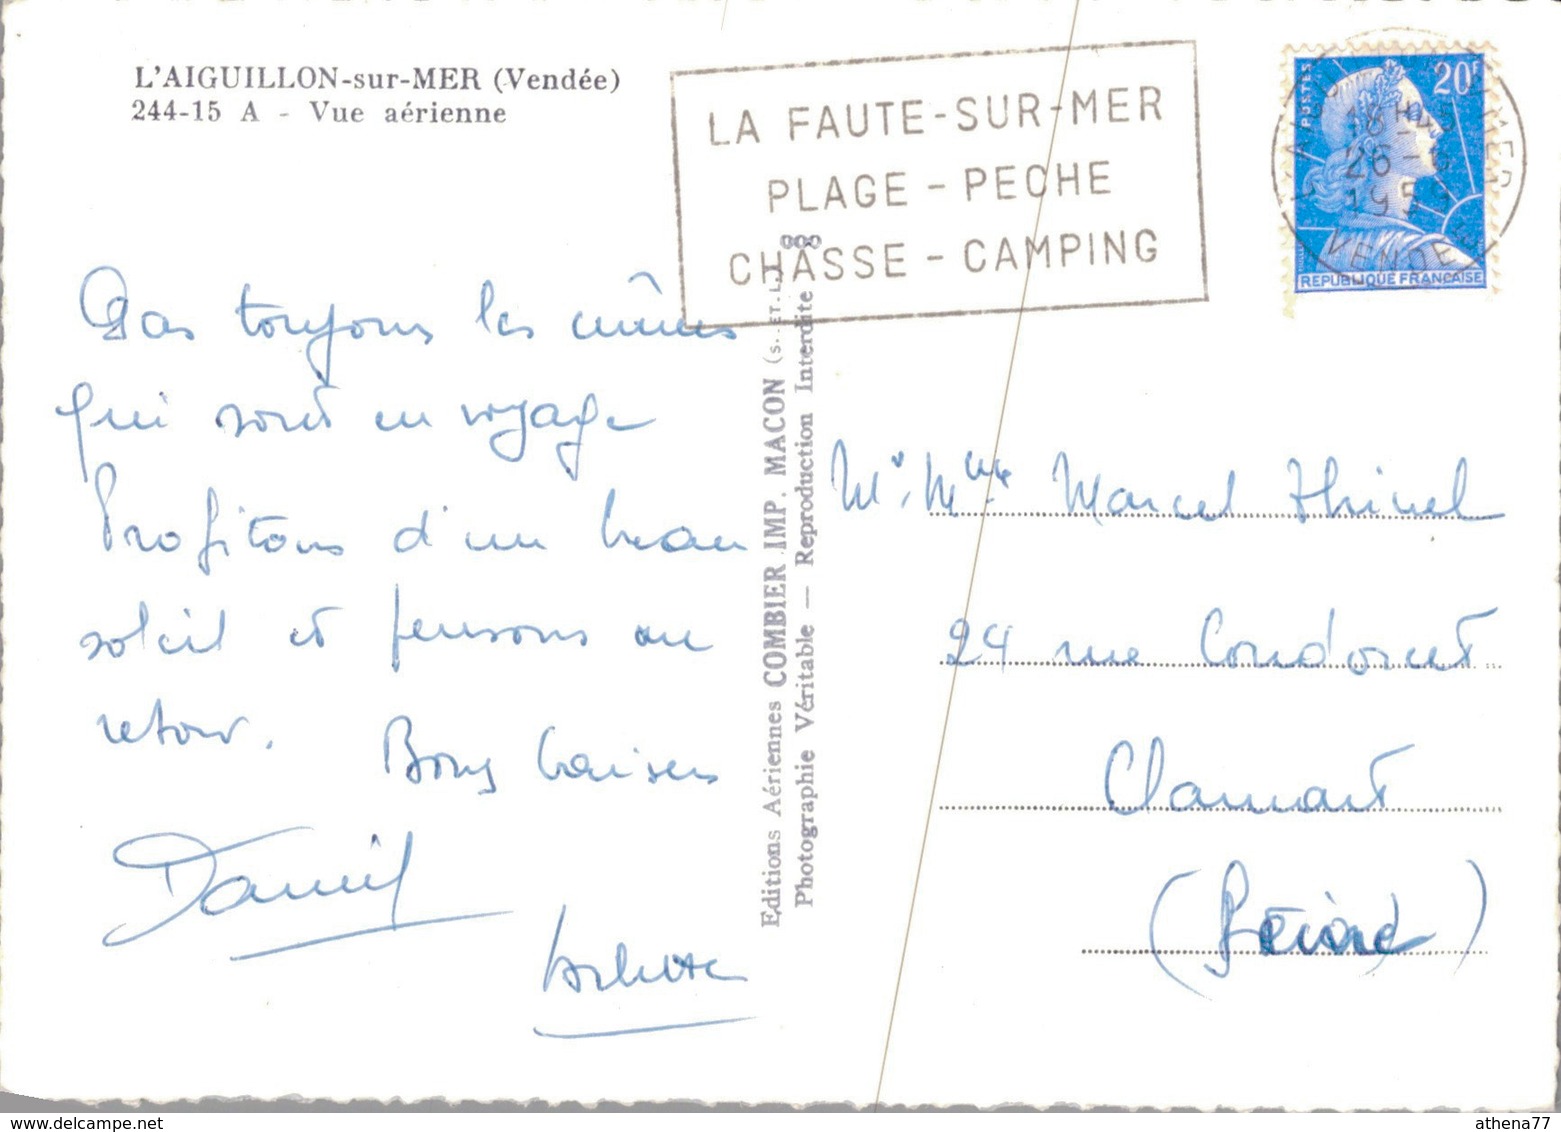 L'AIGUILLON-sur-MER (Vendée)
244-15 A - Vue aérienne
LA FAUTE-SUR-MER
PLAGE - PECHE
CHASSE - CAMPING
20F
POSTES
18H45
26-6
1959
VENDEE
REPUBLIQUE FRANÇAISE
Pas toujours les mêmes
qui sont en voyage
Profitons d'un beau
soleil et pensons au
retour. Bons baisers
Daniel
Editions Aériennes COMBIER IMP. MACON (S.-ET-L.)
Photographie Véritable — Reproduction Interdite
Mr. Mme Marcel Thinel
24 rue Condorcet
Clamart
(Seine)
delcampe.net
athena77